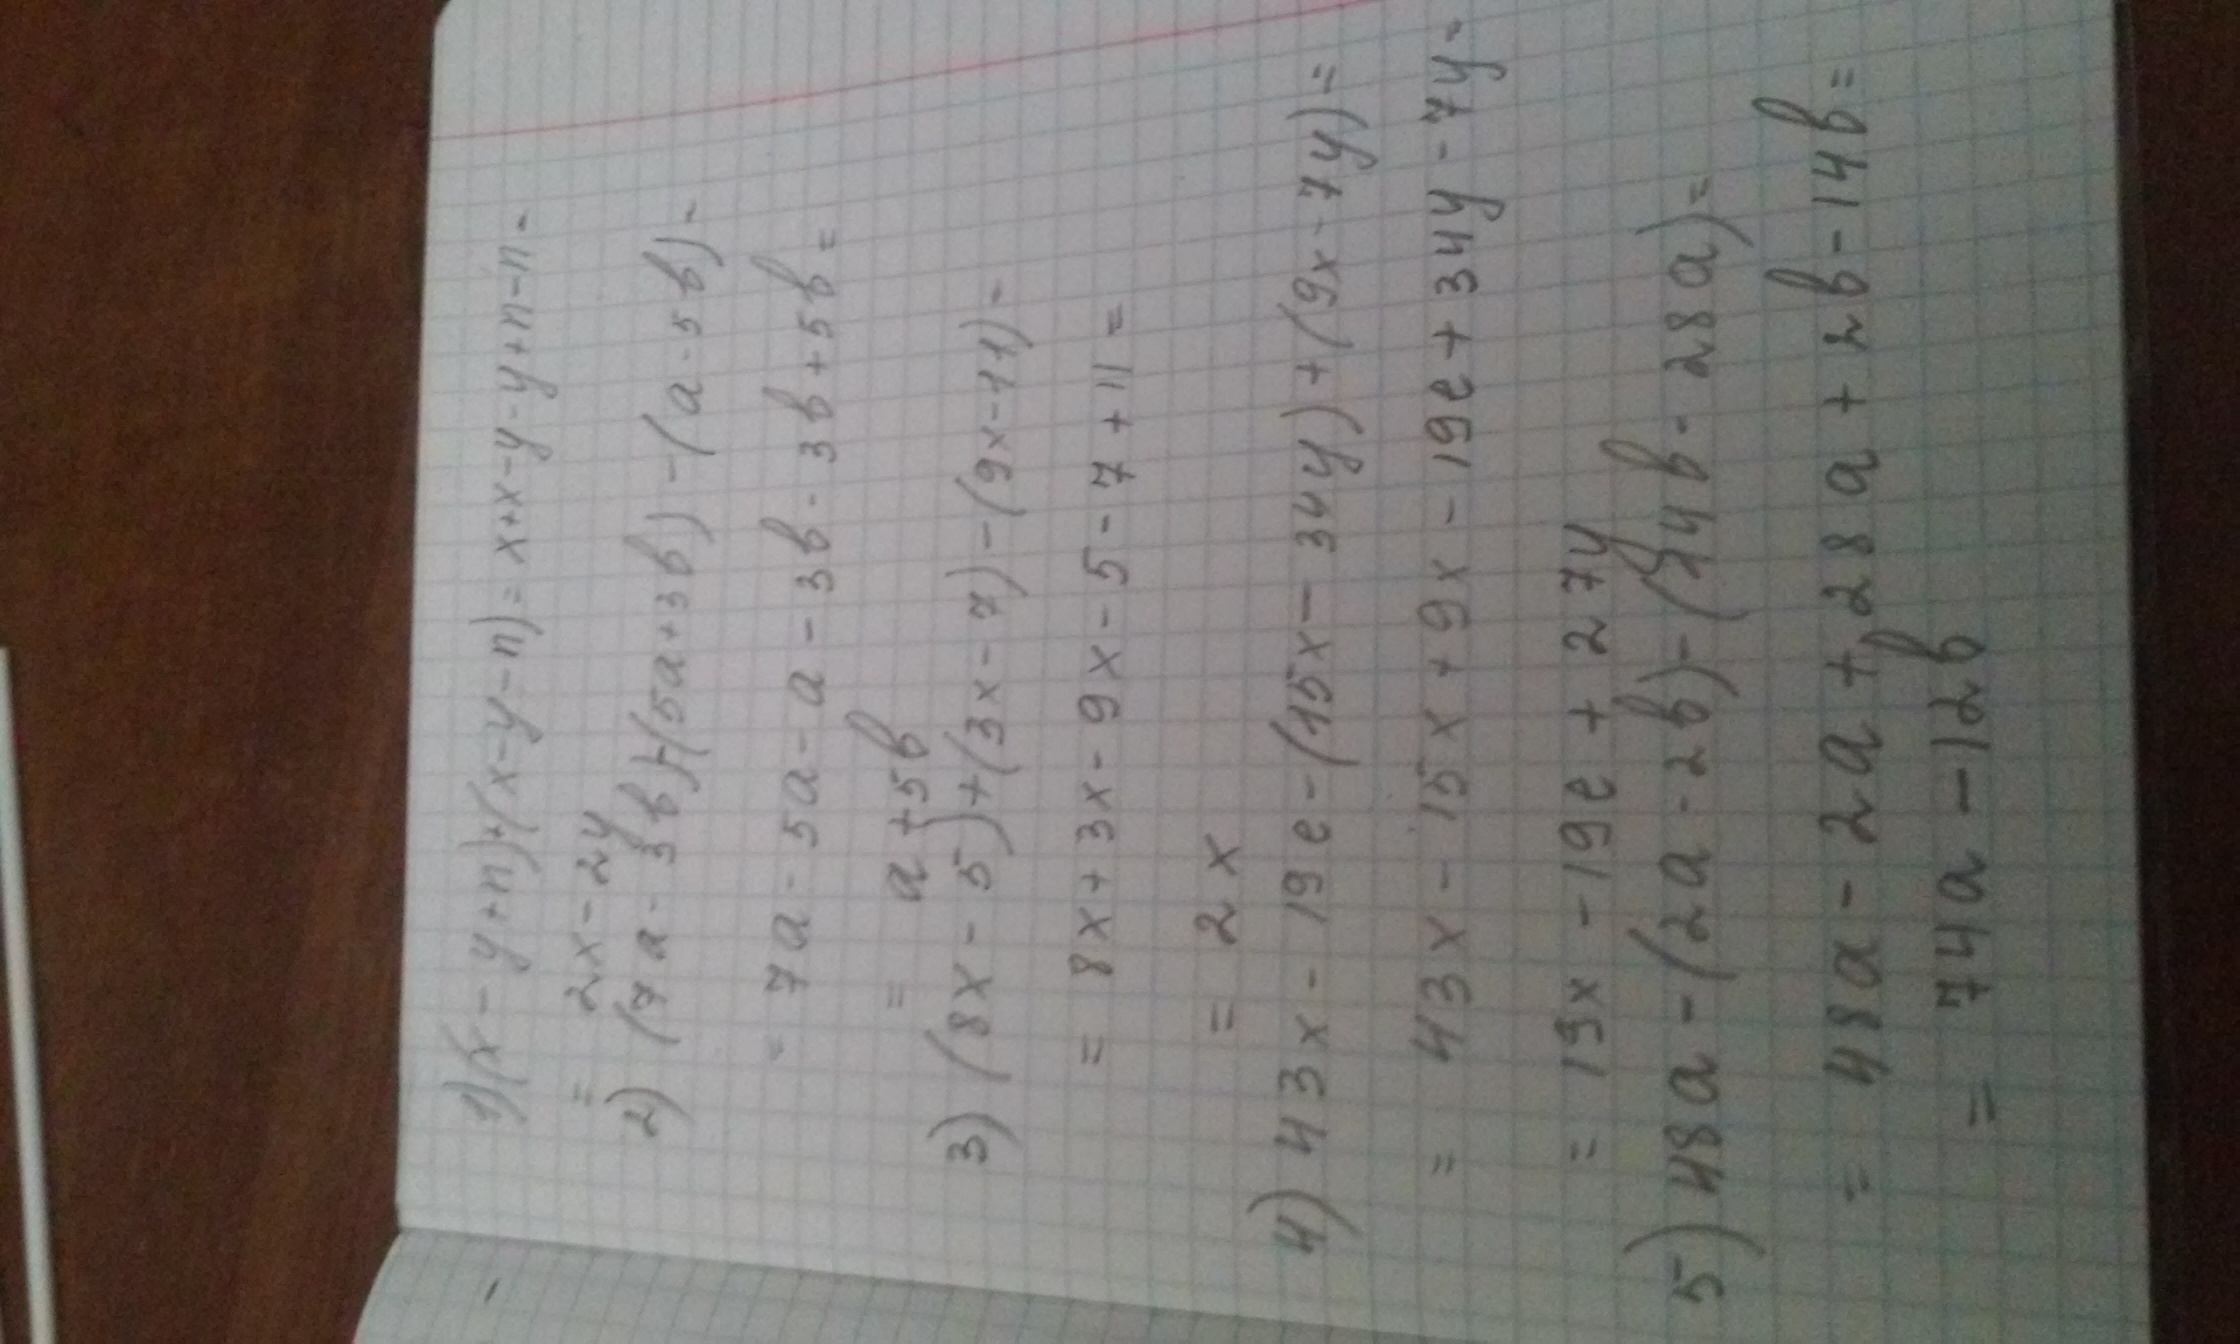 1)(x-y+n)+(x-y-n)=x+x-y-y+n-n-
= 2x-2y
2) (7a-3b)-(5a+3b)-(a-5b)-
- 7a-5a-a-3b-3b+5b=
= a+5b
3) (8x-5)+(3x-7)-(9x-11)-
= 8x+3x-9x-5-7+11=
= 2x
4) 43x-19e-(15x-34y)+(9x-7y)=
= 43x-15x+9x-19e+34y-7y-
= 19x-19e+27y
5) 48a-(2a-2b)-(14b-28a)=
= 48a-2a+28a+2b-14b=
= 74a-12b